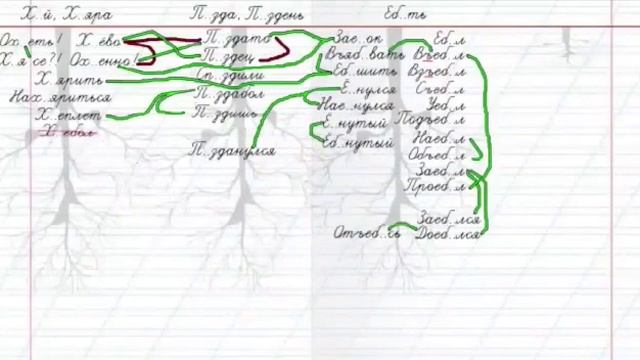 Х..й, Х..яра П..зда, П..здень Еб..ть
Ох..еть! Х..ёво П..здато Зае..ок Еб..л
Х..я се?! Ох..енно! П..здец Въяб..вать Въеб..л
Х..ярить Сп..здили Еб..шить Взъеб..л
Нах..яриться П..здабол Е..нулся Съеб..л
Х..еплет П..здишь Нае..нулся Уеб..л
Х..ебол Е..нутый Подъеб..л
П..зданулся Еб..нутый Наеб..л
Объеб..л
Заеб..л
Проеб..л
Заеб..лся
Отъеб..сь Доеб..лся